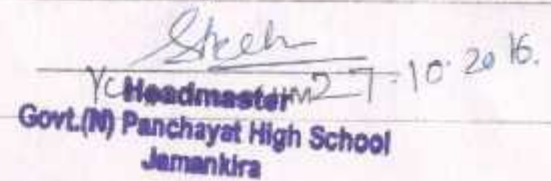 27.10.2016.
Headmaster
Govt.(N) Panchayat High School
Jamankira